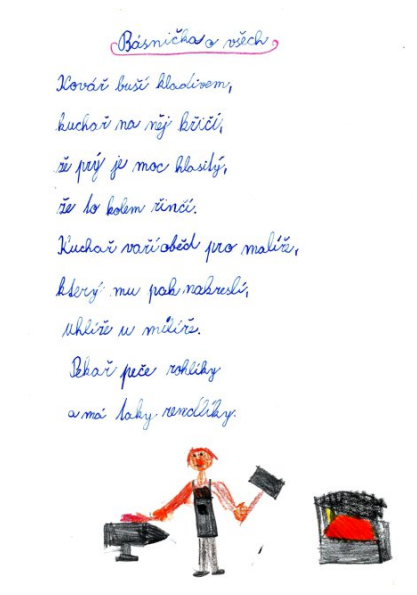 Básnička o všech
Kovář buší kladivem,
kuchař na něj křičí,
že prý je moc hlasitý,
že to kolem řinčí.
Kuchař vaří oběd pro malíře,
který mu pak nakreslí,
uhlíře u milíře.
Pekař peče rohlíky
a má taky rendlíky.